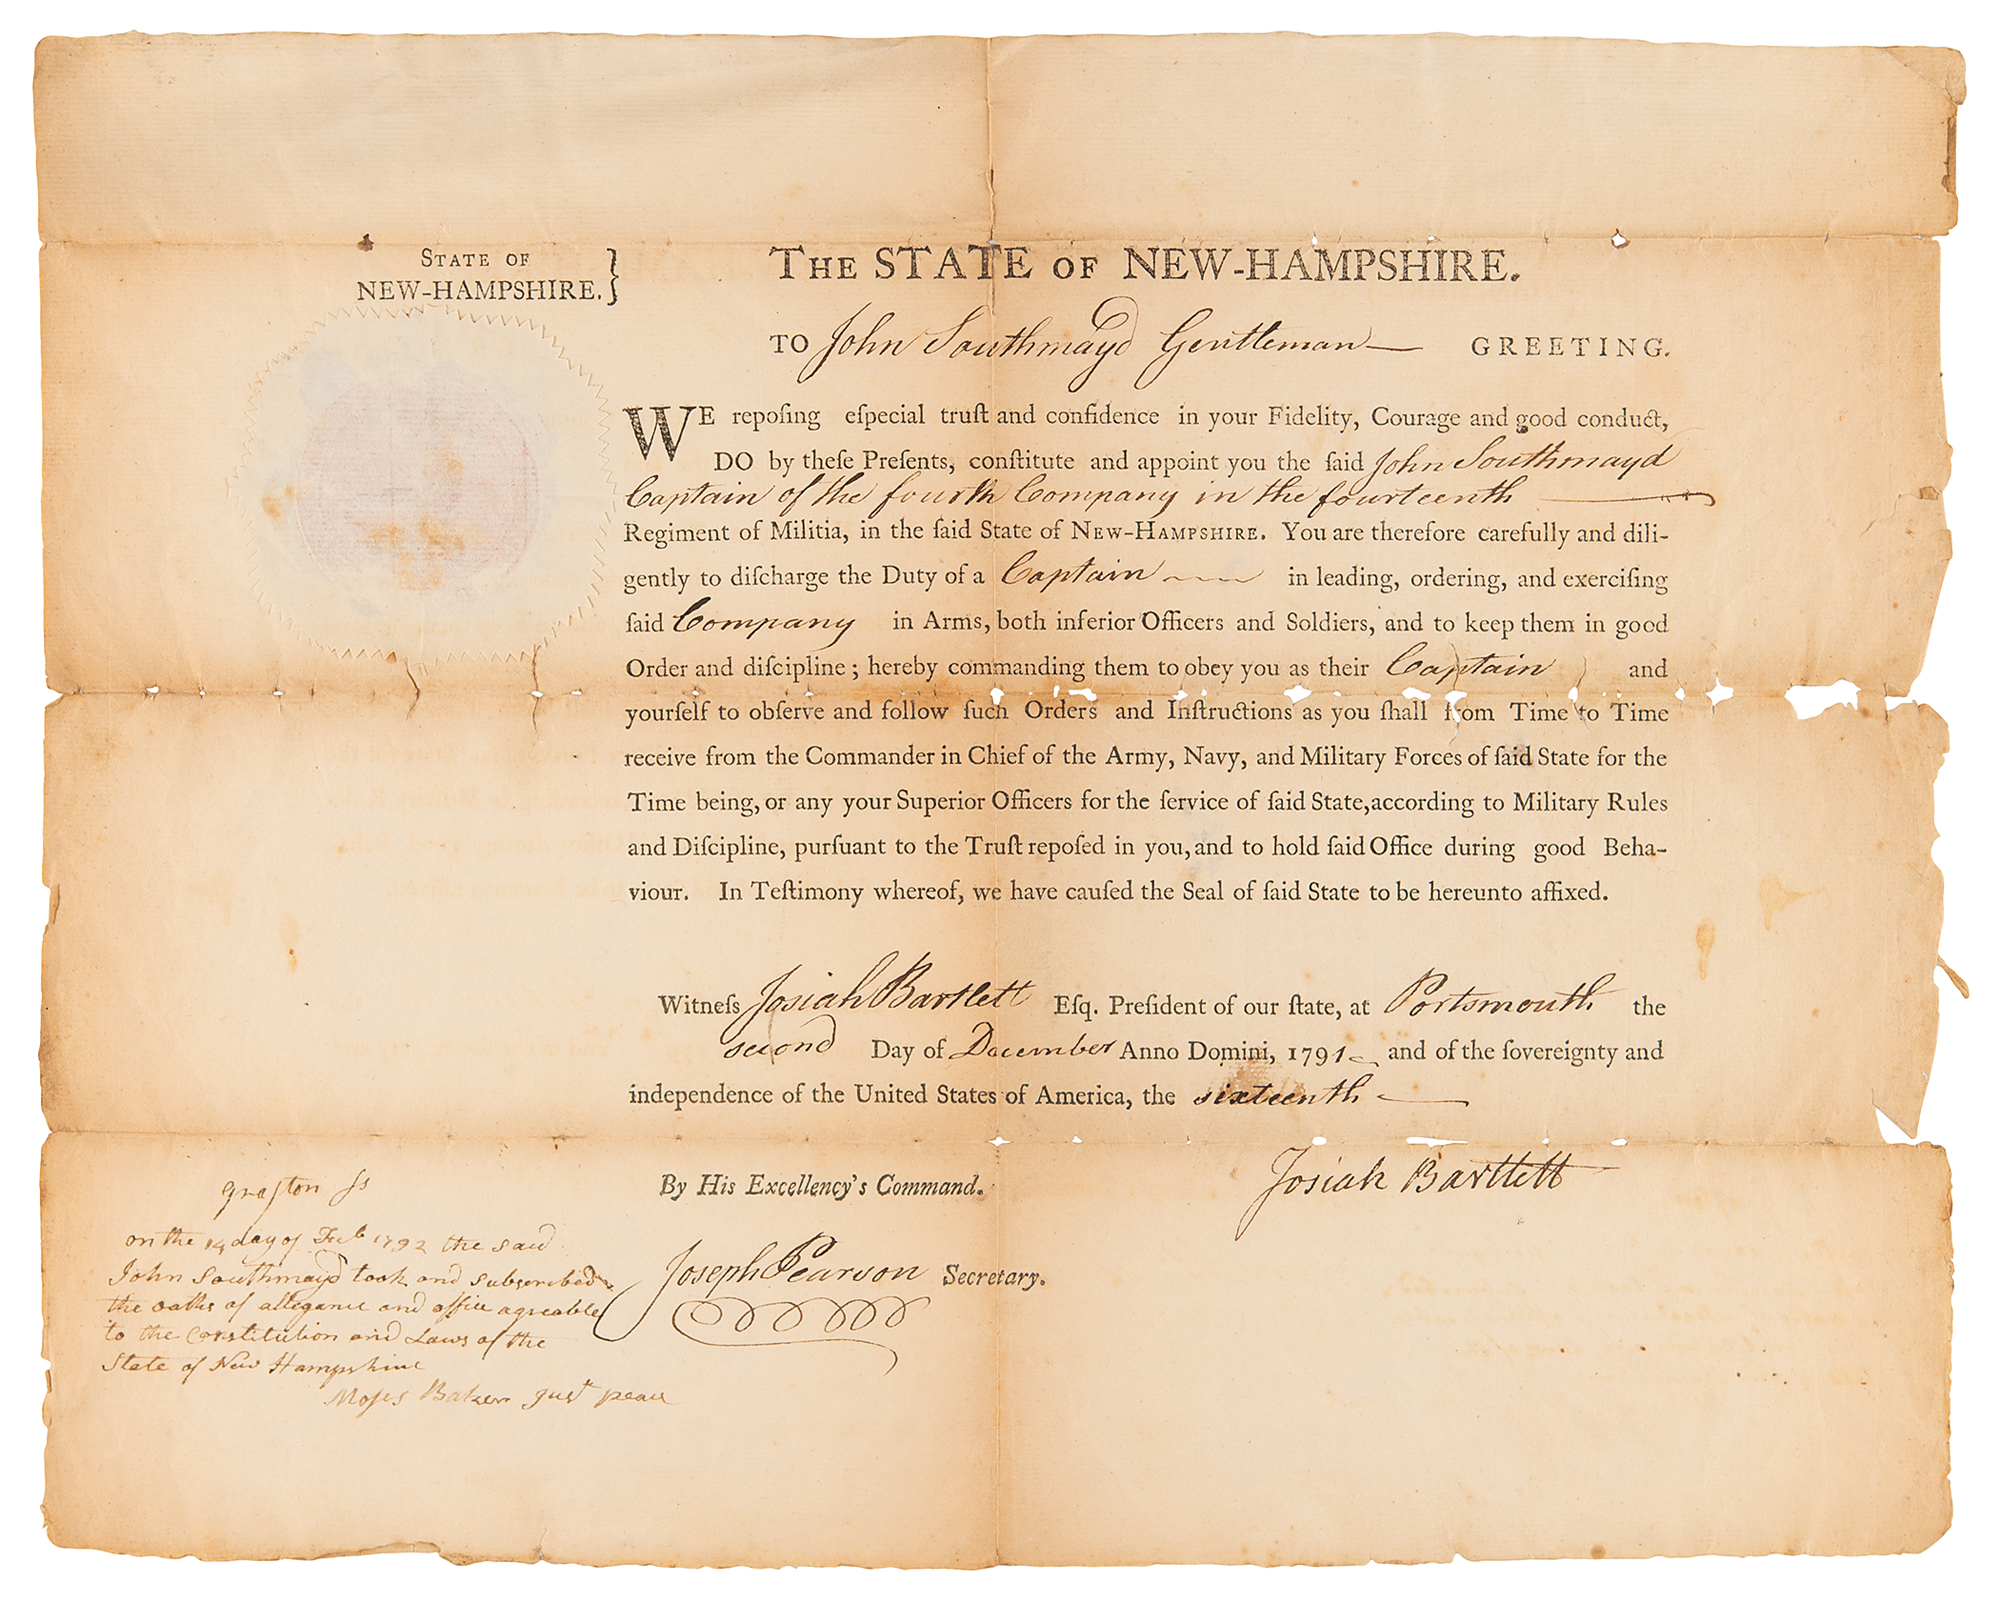 STATE OF
NEW-HAMPSHIRE.}
THE STATE OF NEW-HAMPSHIRE.
TO John Southmayd Gentleman— GREETING.
WE repoſing eſpecial truſt and confidence in your Fidelity, Courage and good conduct,
DO by theſe Preſents, conſtitute and appoint you the ſaid John Southmayd
Captain of the fourth Company in the fourteenth —
Regiment of Militia, in the ſaid State of NEW-HAMPSHIRE. You are therefore carefully and dili-
gently to diſcharge the Duty of a Captain — in leading, ordering, and exerciſing
ſaid Company in Arms, both inferior Officers and Soldiers, and to keep them in good
Order and diſcipline; hereby commanding them to obey you as their Captain and
yourſelf to obſerve and follow ſuch Orders and Inſtructions as you ſhall from Time to Time
receive from the Commander in Chief of the Army, Navy, and Military Forces of ſaid State for the
Time being, or any your Superior Officers for the ſervice of ſaid State, according to Military Rules
and Diſcipline, purſuant to the Truſt repoſed in you, and to hold ſaid Office during good Beha-
viour. In Teſtimony whereof, we have cauſed the Seal of ſaid State to be hereunto affixed.
Witneſs Josiah Bartlett Eſq. Preſident of our ſtate, at Portsmouth the
second Day of December Anno Domini, 1791 — and of the ſovereignty and
independence of the United States of America, the sixteenth —
Josiah Bartlett
By His Excellency's Command.
Joseph Pearson Secretary.
Grafton ſs
on the 14 day of Feb 1792 the said
John Southmayd took and subscribed
the oaths of allegance and office agreable
to the Constitution and Laws of the
State of New Hampshire
Moſes Baker Just peace